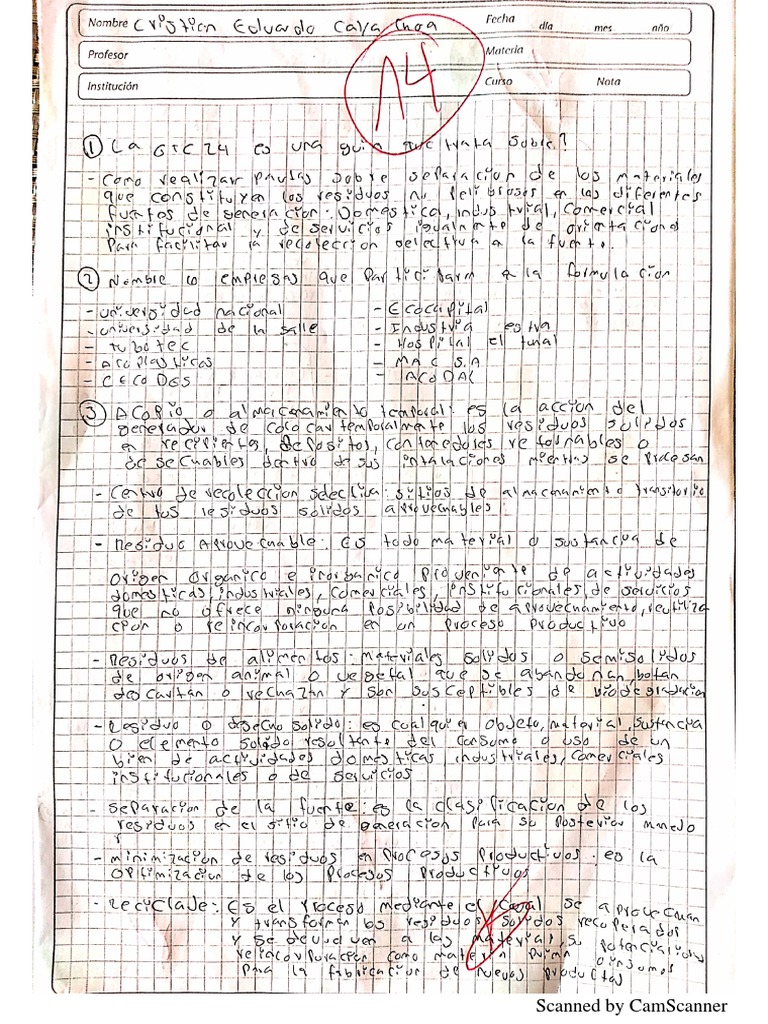 Nombre Cristian Eduardo Cala Fecha día mes año
14
Profesor Materia
Institución Curso Nota
1 La GTC 24 es una guia que trata sobre?
- Como realizar pautas sobre separacion de los materiales
que constituyen los residuos no peligrosos en las diferentes
fuentes de generacion: Domestica, industrial, comercial
institucional y de servicios igualmente de orientaciones
Para facilitar la recoleccion selectiva a la fuente.
2 Nombre 10 empresas que participarn a la formulacion
- universidad nacional
- universidad de la salle
- tubotec
- Acoplasticos
- CECODES
- Ecocapital
- Industria estra
- Hospital el tunal
- MAC S.A
- ACODAL
3 Acopio o almacenamiento temporal: es la accion del
generador de colocar temporalmente los residuos solidos
en recipientes, depositos, contenedores retornables o
desechables dentro de sus intalaciones mientras se procesan
- Centro de recoleccion selectiva: sitios de almacenamiento transitorio
de los residuos solidos aprovechables.
- Residuo Aprovechable: Es todo material o sustancia de
origen organico e inorganico proveniente de actividades
domesticas, industriales, comerciales, institucionales de servicios
que no ofrece ninguna posibilidad de aprovechamiento, reutiliza
cion o reincorporacion en un proceso productivo
- Residuos de alimentos: materiales solidos o semisolidos
de origen animal o vegetal que se abandonan, botan
descartan o rechazan y son susceptibles de biodegradacion
- Residuo o desecho solido: es cualquier objeto, material, sustancia
o elemento solido resultante del consumo o uso de un
bien de actividades domesticas industriales, comerciales
institucionales o de servicios
- separacion de la fuente: es la clasificacion de los
residuos en el sitio de generacion para su posterior manejo
- minimizacion de residuos en procesos productivos: es la
optimizacion de los procesos productivos
- Reciclaje: Es el proceso mediante el cual se aprovechan
y transforman los residuos solidos recuperados
y se devuelven a las material, su potencialidad
reincorporacion como materia prima o insumos
para la fabricacion de nuevos productos
Scanned by CamScanner